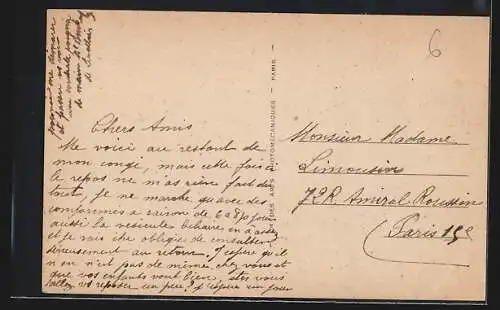 Chers Amis
Me voici au restant de
mon congé, mais cette fois ci
le repos ne m'as rien fait du
tout, je ne marche qu'avec des
comprimés a raison de 6 a 8 p jour
aussi la vesicule behave en a assez
et je vais être obligée de consulter
serieusement au retour. J'espère qu'il
n en n'est pas de même chez vous et
que vos enfants vont bien,
vous reposer un peu? J'espère un jour
de main
6
Monsieur Madame
Limousin
72 R. Amiral Roussin
Paris 15e
ARTS PHOTOMECANIQUES - PARIS